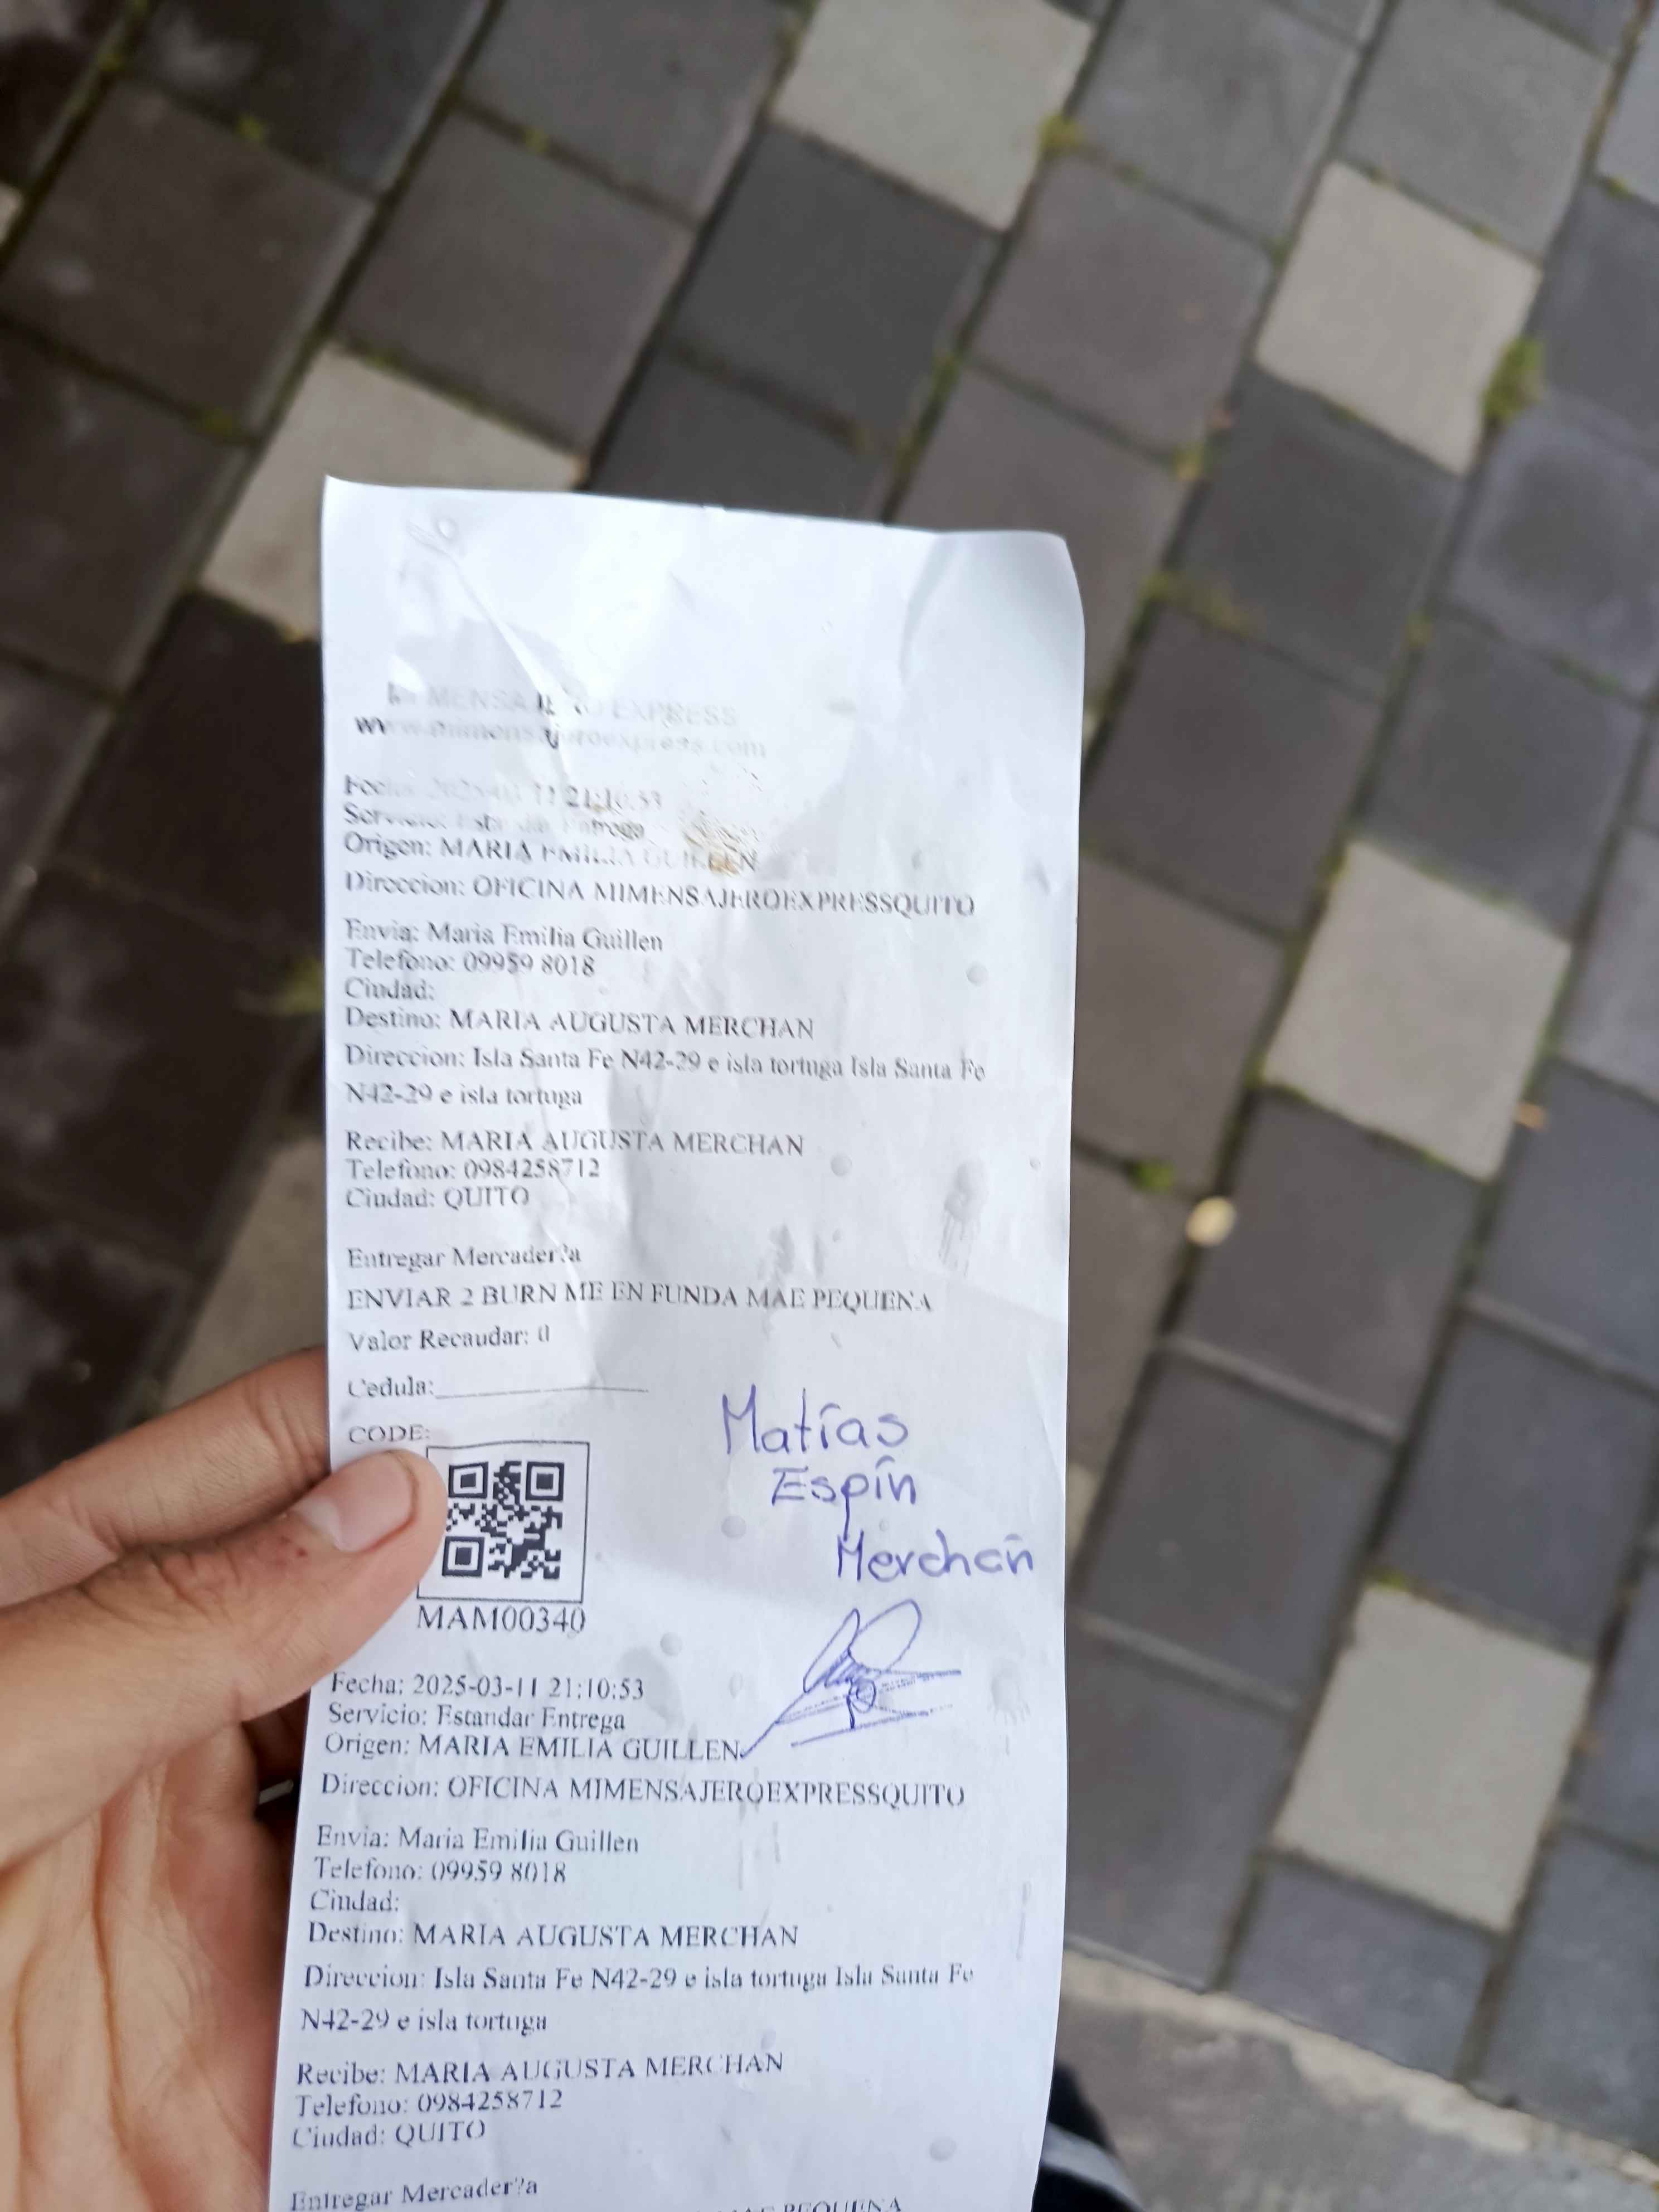 MENSAJERO EXPRESS
www.mimensajeroexpress.com
Fecha: 2025-03-11 21:10:53
Servicio: Estandar Entrega
Origen: MARIA EMILIA GUILLEN
Direccion: OFICINA MIMENSAJEROEXPRESSQUITO
Envia: Maria Emilia Guillen
Telefono: 09959 8018
Ciudad:
Destino: MARIA AUGUSTA MERCHAN
Direccion: Isla Santa Fe N42-29 e isla tortuga Isla Santa Fe
N42-29 e isla tortuga
Recibe: MARIA AUGUSTA MERCHAN
Telefono: 0984258712
Ciudad: QUITO
Entregar Mercader?a
ENVIAR 2 BURN ME EN FUNDA MAE PEQUENA
Valor Recaudar: 0
Cedula:
CODE:
Matías
Espín
Merchán
MAM00340
Fecha: 2025-03-11 21:10:53
Servicio: Estandar Entrega
Origen: MARIA EMILIA GUILLEN
Direccion: OFICINA MIMENSAJEROEXPRESSQUITO
Envia: Maria Emilia Guillen
Telefono: 09959 8018
Ciudad:
Destino: MARIA AUGUSTA MERCHAN
Direccion: Isla Santa Fe N42-29 e isla tortuga Isla Santa Fe
N42-29 e isla tortuga
Recibe: MARIA AUGUSTA MERCHAN
Telefono: 0984258712
Ciudad: QUITO
Entregar Mercader?a
MAE PEQUENA